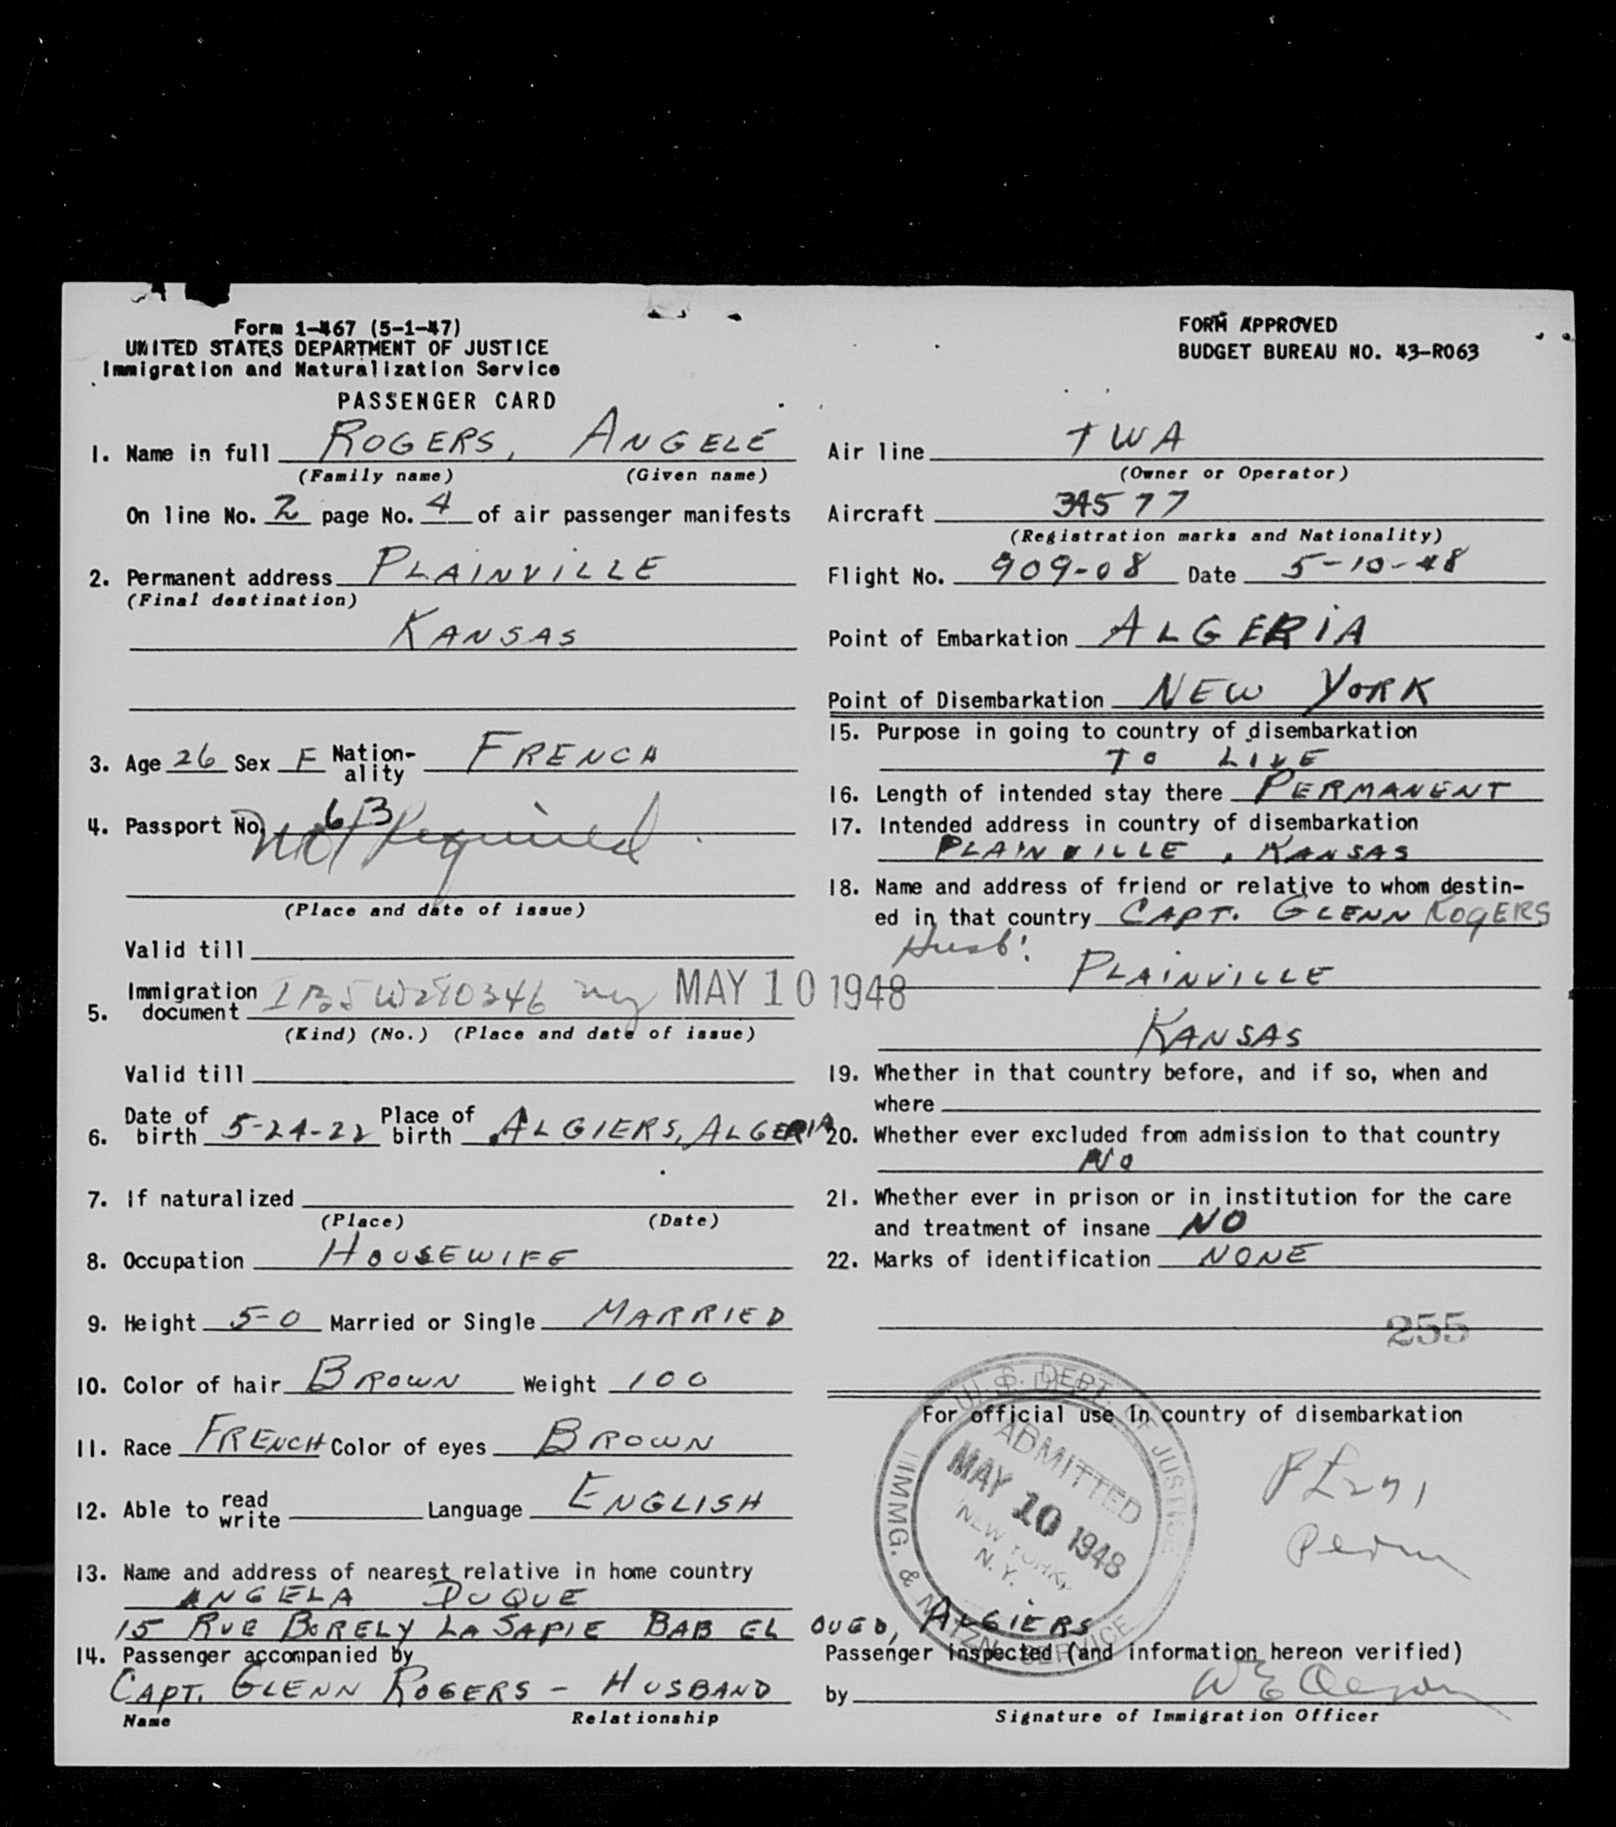 Form 1-467 (5-1-47)
UNITED STATES DEPARTMENT OF JUSTICE
Immigration and Naturalization Service
PASSENGER CARD
FORM APPROVED
BUDGET BUREAU NO. 43-R063
1. Name in full ROGERS, ANGELE
(Family name) (Given name)
On line No. 2 page No. 4 of air passenger manifests
2. Permanent address PLAINVILLE
(Final destination)
KANSAS
3. Age 26 Sex F Nation-ality FRENCH
4. Passport No. 613 Not Required
(Place and date of issue)
Valid till
5. Immigration document MAY 10 1948
(Kind) (No.) (Place and date of issue)
Valid till
6. Date of birth 5-24-22 Place of birth ALGIERS, ALGERIA
7. If naturalized
(Place) (Date)
8. Occupation HOUSEWIFE
9. Height 5-0 Married or Single MARRIED
10. Color of hair BROWN Weight 100
11. Race FRENCH Color of eyes BROWN
12. Able to read write Language ENGLISH
13. Name and address of nearest relative in home country
ANGELA DUQUE
15 RUE BORELY LA SAPIE BAB EL OUED, ALGIERS
14. Passenger accompanied by
CAPT. GLENN ROGERS - HUSBAND
Name Relationship
Air line TWA
(Owner or Operator)
Aircraft 34577
(Registration marks and Nationality)
Flight No. 909-08 Date 5-10-48
Point of Embarkation ALGERIA
Point of Disembarkation NEW YORK
15. Purpose in going to country of disembarkation
TO LIVE
16. Length of intended stay there PERMANENT
17. Intended address in country of disembarkation
PLAINVILLE, KANSAS
18. Name and address of friend or relative to whom destin-
ed in that country CAPT. GLENN ROGERS
Husb.
PLAINVILLE
KANSAS
19. Whether in that country before, and if so, when and
where
20. Whether ever excluded from admission to that country
NO
21. Whether ever in prison or in institution for the care
and treatment of insane NO
22. Marks of identification NONE
255
For official use in country of disembarkation
U.S. DEPT. OF JUSTICE
ADMITTED
MAY 10 1948
NEW YORK,
N.Y.
IMMG. & NATZN. SERVICE
Perm
Passenger inspected (and information hereon verified)
by
Signature of Immigration Officer